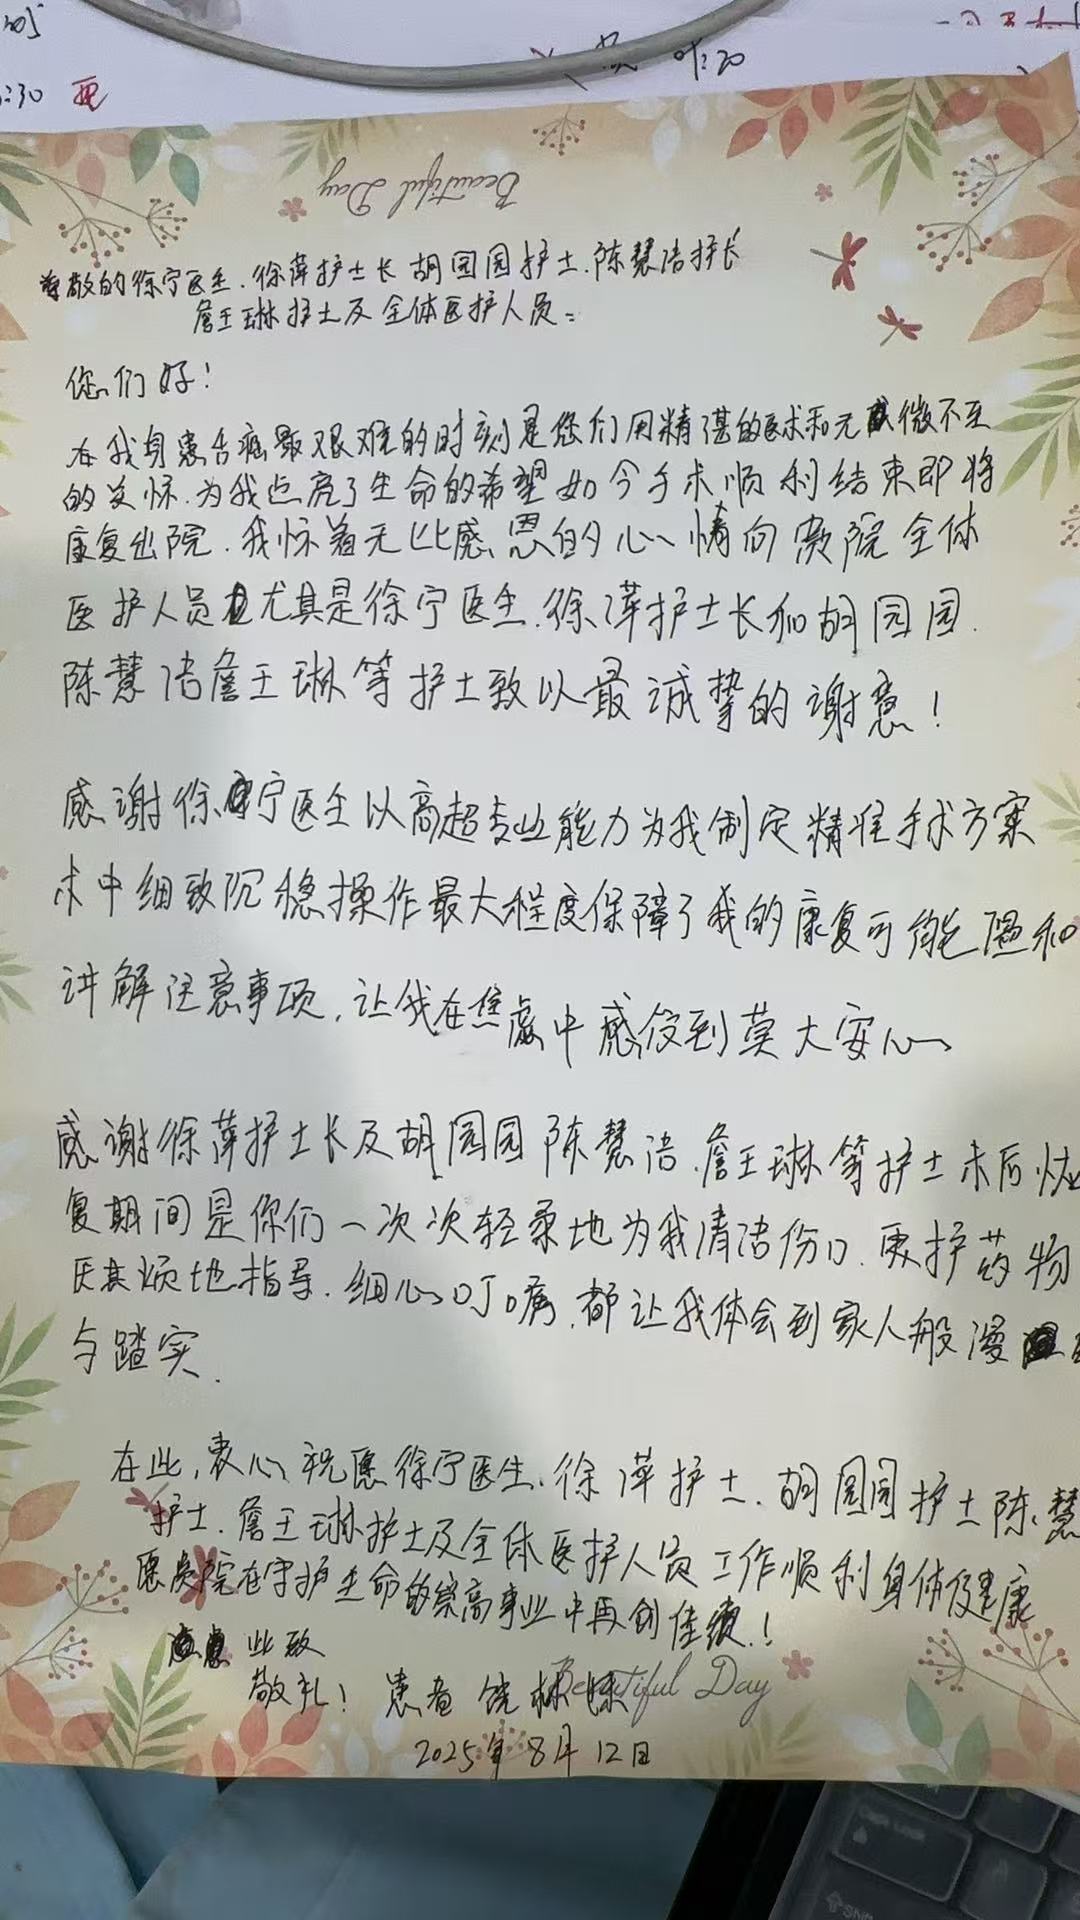 :30
01:20
Beautiful Day
尊敬的徐宁医生.徐萍护士长胡园园护士.陈慧洁护长
詹王琳护士及全体医护人员:
您们好!
在我身患舌癌最艰难的时刻是您们用精湛的医术和无微不至
的关怀.为我点亮了生命的希望如今手术顺利结束即将
康复出院.我怀着无比感恩的心情向贵院全体
医护人员尤其是徐宁医生.徐萍护士长和胡园园.
陈慧洁詹王琳等护士致以最诚挚的谢意!
感谢徐宁医生以高超专业能力为我制定精准手术方案
术中细致沉稳操作最大程度保障了我的康复可能温和
讲解注意事项,让我在焦虑中感受到莫大安心
感谢徐萍护士长及胡园园陈慧洁.詹王琳等护士术后恢
复期间是你们一次次轻柔地为我清洁伤口.更护药物
厌其烦地指导.细心叮嘱.都让我体会到家人般漫
与踏实.
在此,衷心祝愿徐宁医生.徐萍护士.胡园园护士陈慧
护士.詹王琳护士及全体医护人员工作顺利身体健康
愿贵院在守护生命的崇高事业中再创佳绩!
此致
敬礼! 患者 饶
Beautiful Day
2025年8月12日